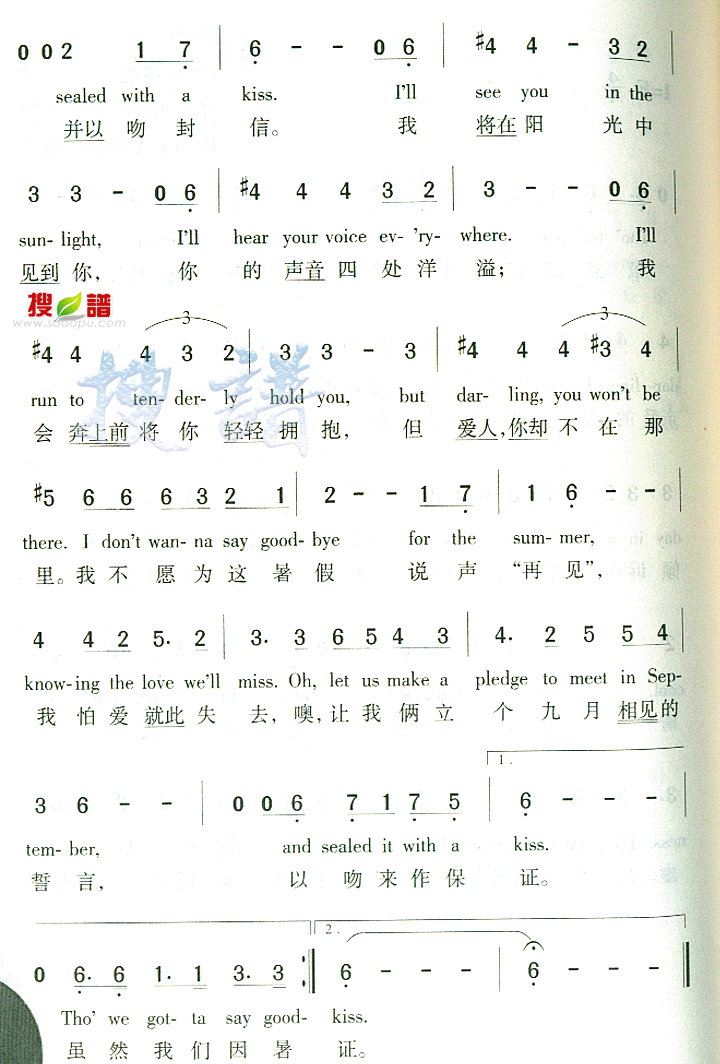 0 0 2 1 7 | 6 - - 0 6 | #4 4 - 3 2 |
sealed with a kiss. I'll see you in the
并以吻封信。我将在阳光中
3 3 - 0 6 | #4 4 4 3 2 | 3 - - 0 6 |
sun- light, I'll hear your voice ev- 'ry- where. I'll
见到你, 你的声音四处洋溢; 我
搜谱
www.sooopu.com
3 3
#4 4 4 3 2 | 3 3 - 3 | #4 4 4 #3 4 |
run to ten- der- ly hold you, but dar- ling, you won't be
会奔上前将你轻轻拥抱, 但爱人, 你却不在那
搜谱
#5 6 6 6 3 2 1 | 2 - - 1 7 | 1 6 - - |
there. I don't wan- na say good- bye for the sum- mer,
里。我不愿为这暑假说声“再见”,
4 4 2 5. 2 | 3. 3 6 5 4 3 | 4. 2 5 5 4 |
know-ing the love we'll miss. Oh, let us make a pledge to meet in Sep-
我怕爱就此失去, 噢, 让我俩立个九月相见的
1.
3 6 - - | 0 0 6 7 1 7 5 | 6 - - - |
tem- ber, and sealed it with a kiss.
誓言, 以吻来作保证。
2.
0 6. 6 1. 1 3. 3 :| 6 - - - | 6 - - - ||
Tho' we got- ta say good- kiss.
虽然我们因暑证。